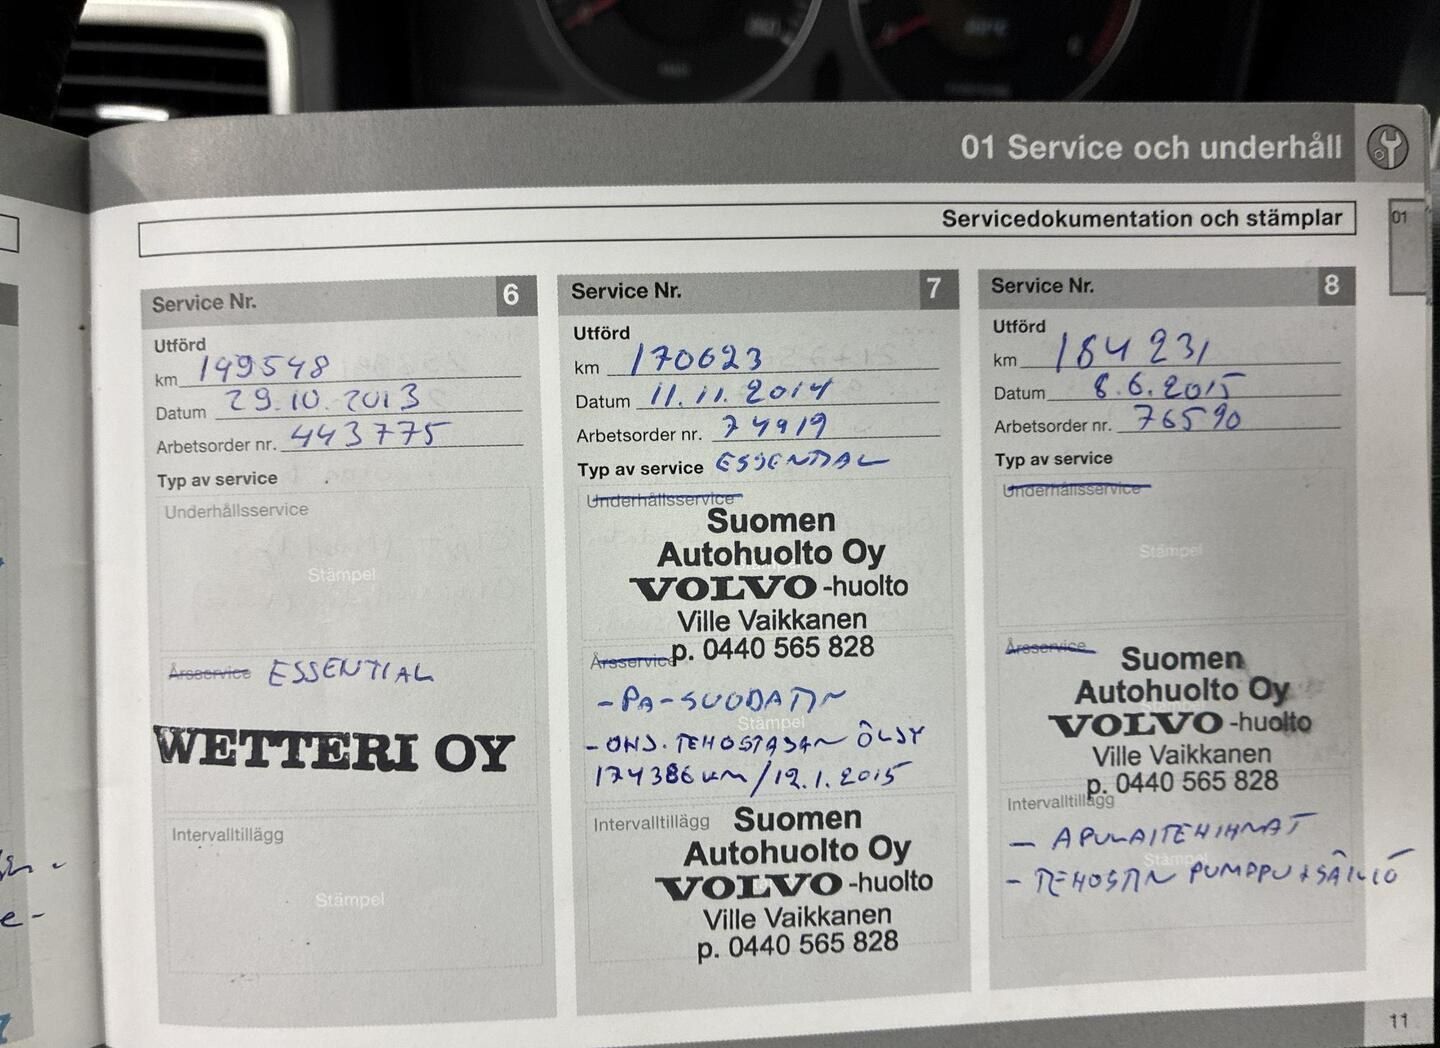 01 Service och underhåll
01
Servicedokumentation och stämplar
Service Nr. 6
Utförd
km 149548
Datum 29.10.2013
Arbetsorder nr. 443775
Typ av service
Underhållsservice
Stämpel
Årsservice ESSENTIAL
WETTERI OY
Intervalltillägg
Stämpel
Service Nr. 7
Utförd
km 170623
Datum 11.11.2014
Arbetsorder nr. 74919
Typ av service ESSENTIAL
Underhållsservice
Suomen
Autohuolto Oy
VOLVO-huolto
Ville Vaikkanen
p. 0440 565 828
Årsservice
- PA-SUODATIN
Stämpel
- OHJ.TEHOSTAJAN ÖLJY
174386 km/12.1.2015
Intervalltillägg
Suomen
Autohuolto Oy
VOLVO-huolto
Ville Vaikkanen
p. 0440 565 828
Service Nr. 8
Utförd
km 184231
Datum 8.6.2015
Arbetsorder nr. 76590
Typ av service
Underhållsservice
Stämpel
Årsservice
Suomen
Autohuolto Oy
VOLVO-huolto
Ville Vaikkanen
p. 0440 565 828
Intervalltillägg
- APULAITEHIHNAT
Stämpel
- TEHOSTIN PUMPPU+SÄILIÖ
11